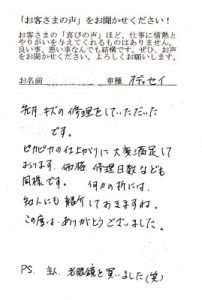 「お客さまの声」をお聞かせください！
お客さまの「喜びの声」ほど、仕事に情熱と
やりがいを与えてくれるものはありません。
良い事、悪い事なんでも結構です。ぜひ、お声
をお聞かせください。よろしくお願いします。
お名前 車種 オデッセイ
先月、キズの修理をしていただいた
です。
ピカピカの仕上がりに大変満足して
おります。価格、修理日数なども
同様です。 何かの折には、
知人にも紹介しておきますね。
この度は、ありがとうございました。
PS. 主人、老眼鏡を買いました(笑)